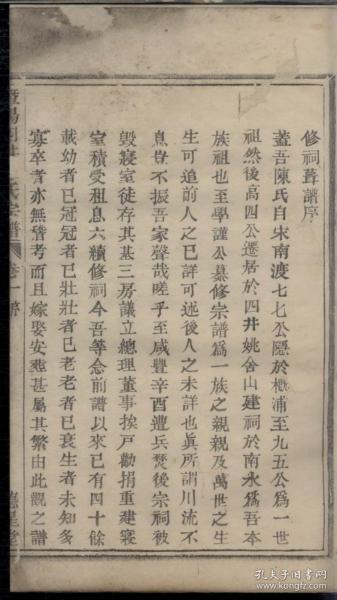 修祠葺譜序
蓋吾陳氏自宋南渡七七公隱於概浦至九五公為一世
祖然後高四公遷居於四井姚舍山建祠於南永為吾本
族祖也至學謹公纂修宗譜為一族之親親及萬世之生
生可追前人之已詳可述後人之未詳也眞所謂川流不
息豈不振吾家聲哉嗟乎至咸豐辛酉遭兵焚後宗祠被
毀寢室徒存其基三房議立總理董事挨戶勸捐重建寢
室積受租息六續修祠今吾等念前譜以來已有四十餘
載幼者已冠冠者已壯壯者已老老者已衰生者未知多
寡卒者亦無稽考而且嫁娶安塟甚屬其繁由此觀之譜
氏宗譜 卷一 序
德星堂
孔夫子旧书网